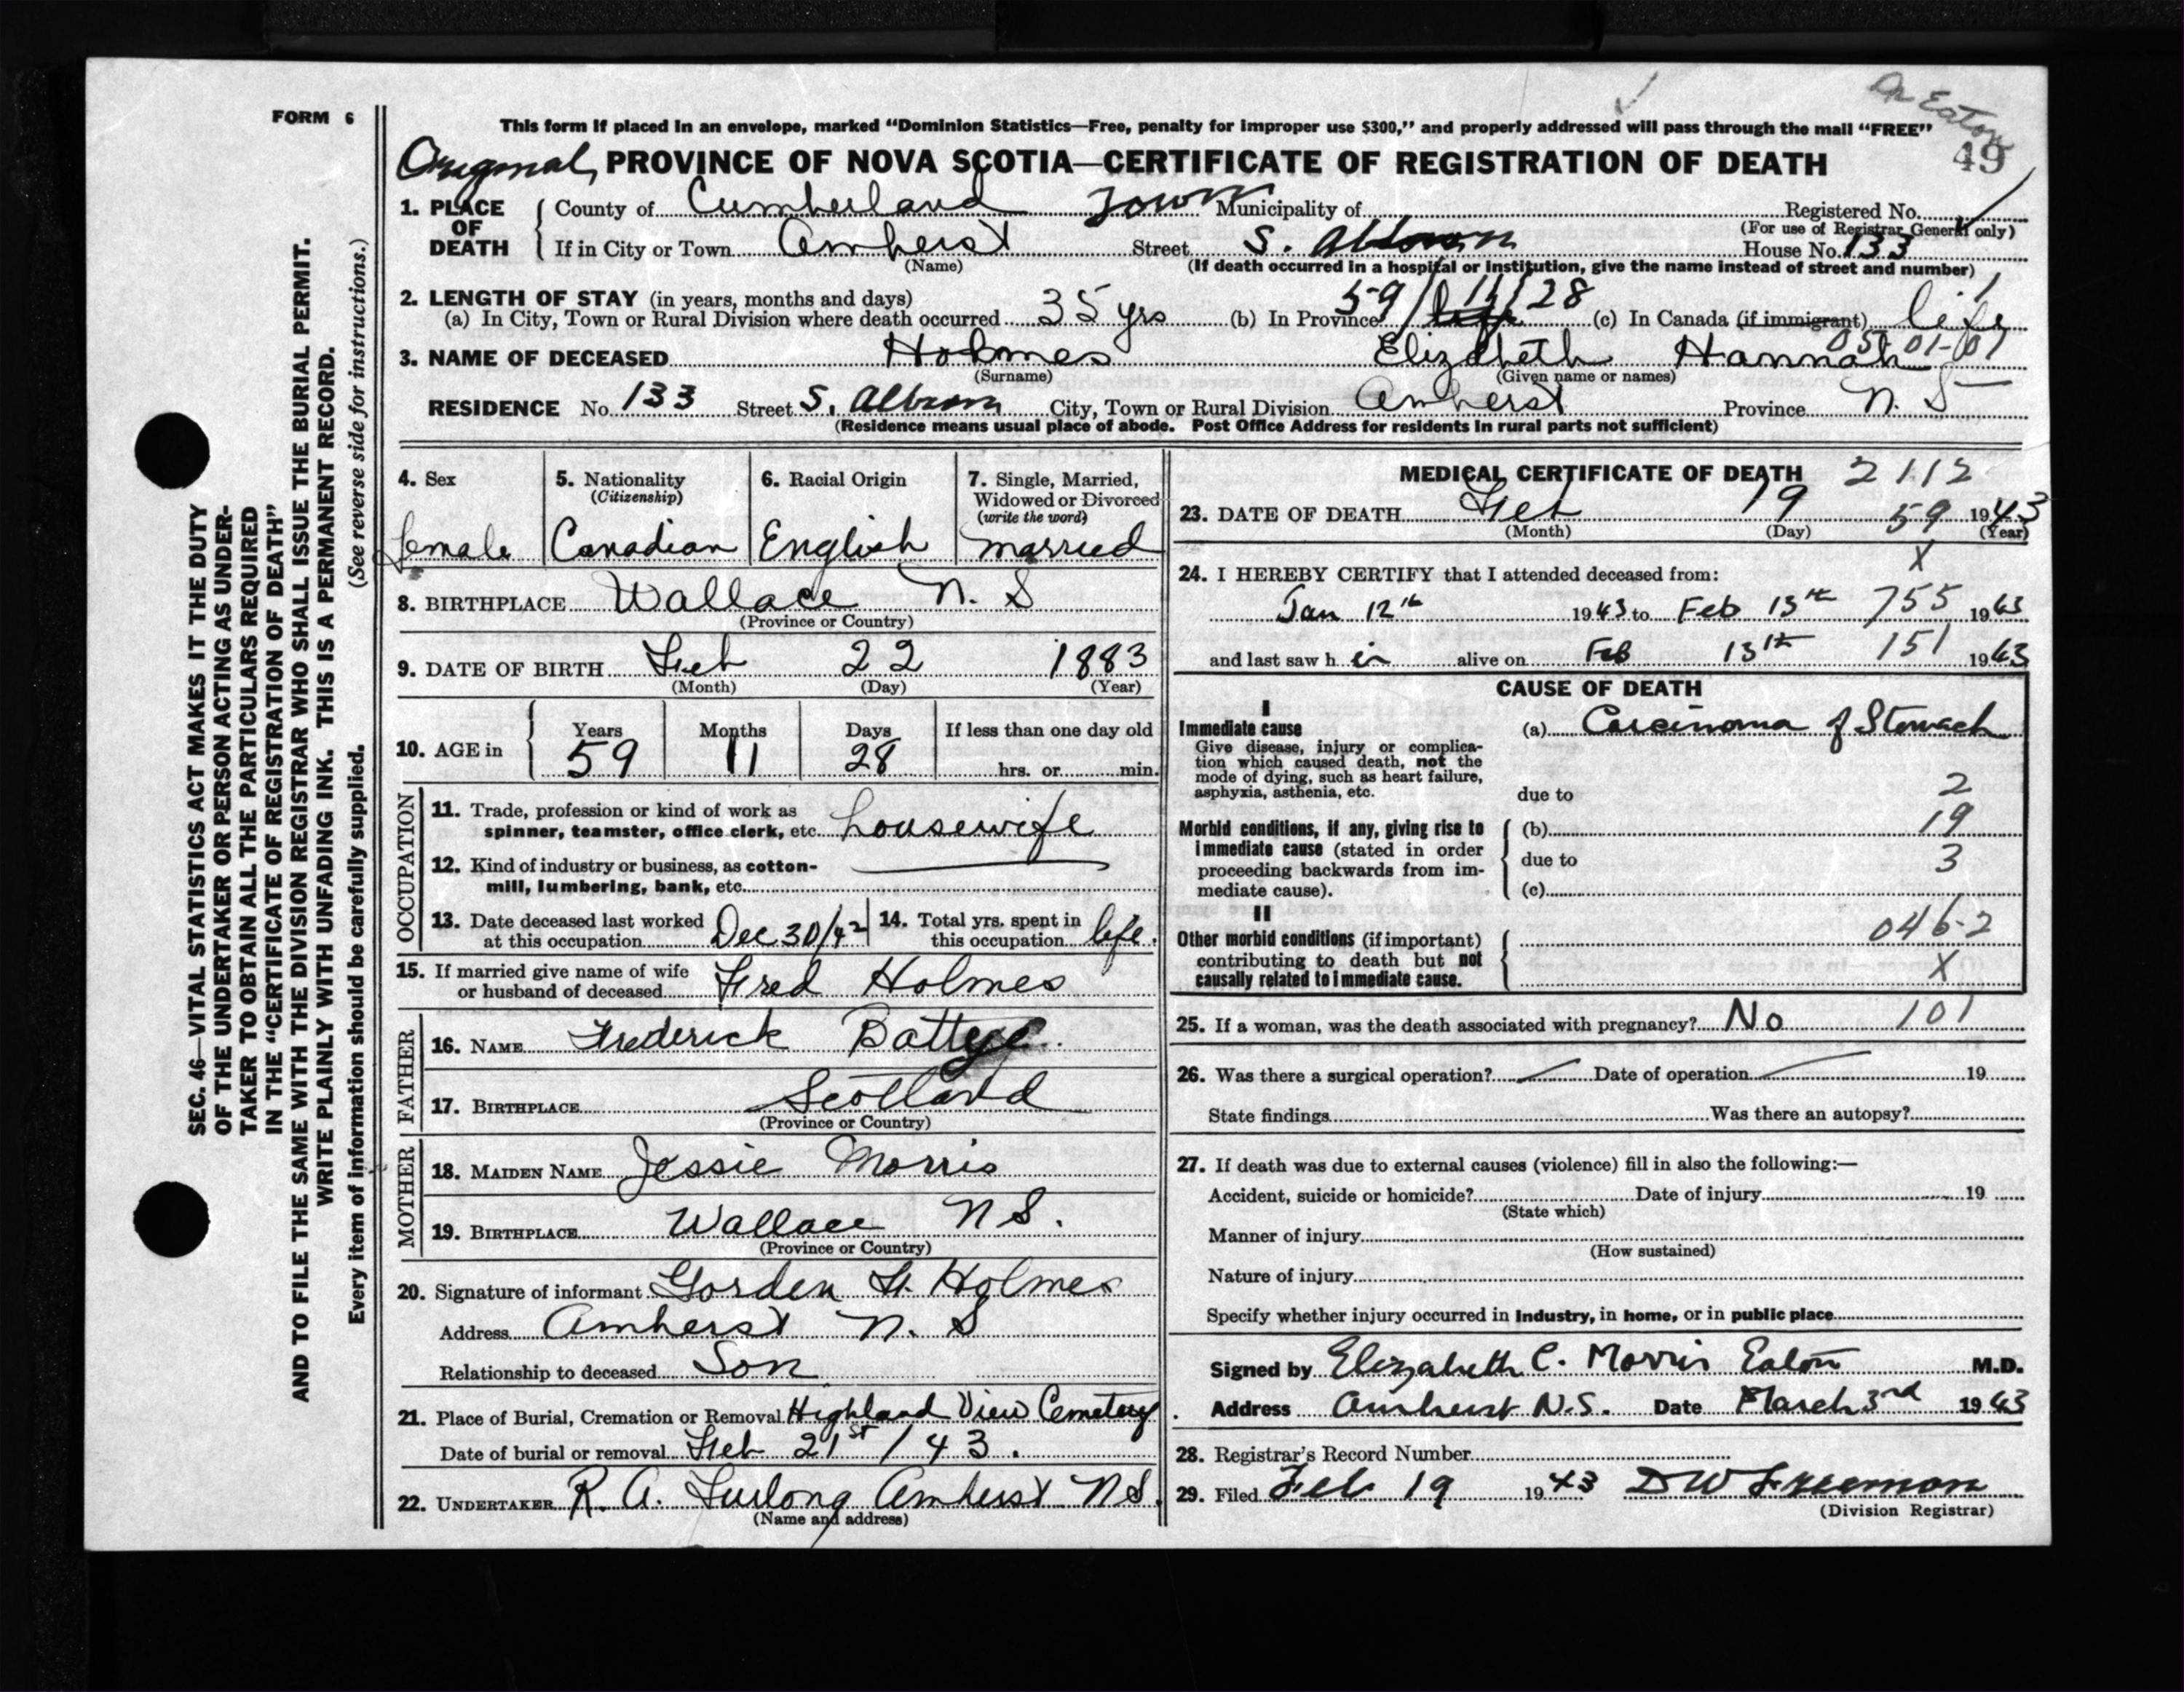 FORM 6
Dr Eaton
This form if placed in an envelope, marked "Dominion Statistics—Free, penalty for improper use $300," and properly addressed will pass through the mail "FREE"
49
Original, PROVINCE OF NOVA SCOTIA—CERTIFICATE OF REGISTRATION OF DEATH
1. PLACE OF DEATH
County of Cumberland Town Municipality of Registered No.
(For use of Registrar General only)
If in City or Town Amherst Street S. Albion House No. 133
(Name) (If death occurred in a hospital or institution, give the name instead of street and number)
2. LENGTH OF STAY (in years, months and days) 59/11/28 1
(a) In City, Town or Rural Division where death occurred 35 yrs (b) In Province life (c) In Canada (if immigrant) life
05-01-01
3. NAME OF DECEASED Holmes Elizabeth Hannah
(Surname) (Given name or names)
RESIDENCE No. 133 Street S. Albion City, Town or Rural Division Amherst Province N. S
(Residence means usual place of abode. Post Office Address for residents in rural parts not sufficient)
4. Sex
female
5. Nationality
(Citizenship)
Canadian
6. Racial Origin
English
7. Single, Married,
Widowed or Divorced
(write the word)
married
8. BIRTHPLACE Wallace N. S
(Province or Country)
9. DATE OF BIRTH Feb 22 1883
(Month) (Day) (Year)
10. AGE in
Years Months Days If less than one day old
59 11 28 hrs. or min.
OCCUPATION
11. Trade, profession or kind of work as
spinner, teamster, office clerk, etc. housewife
12. Kind of industry or business, as cotton-
mill, lumbering, bank, etc.
13. Date deceased last worked
at this occupation Dec 30/42
14. Total yrs. spent in
this occupation life.
15. If married give name of wife
or husband of deceased Fred Holmes
FATHER
16. NAME Frederick Battye
17. BIRTHPLACE Scotland
(Province or Country)
MOTHER
18. MAIDEN NAME Jessie Morris
19. BIRTHPLACE Wallace N S.
(Province or Country)
20. Signature of informant Gorden F. Holmes
Address Amherst N. S
Relationship to deceased Son
21. Place of Burial, Cremation or Removal Highland View Cemetery
Date of burial or removal Feb 21st / 43.
22. UNDERTAKER R. A. Furlong Amherst N S.
(Name and address)
MEDICAL CERTIFICATE OF DEATH 2112
23. DATE OF DEATH Feb 19 59 1943
(Month) (Day) (Year)
X
24. I HEREBY CERTIFY that I attended deceased from:
Jan 12th 1943 to Feb 13th 755 1943
and last saw h er alive on Feb 13th 151 1943
CAUSE OF DEATH
I
Immediate cause
Give disease, injury or complica-
tion which caused death, not the
mode of dying, such as heart failure,
asphyxia, asthenia, etc.
(a) Carcinoma of Stomach
due to 2
Morbid conditions, if any, giving rise to
immediate cause (stated in order
proceeding backwards from im-
mediate cause).
(b) 19
due to 3
(c)
II
Other morbid conditions (if important)
contributing to death but not
causally related to immediate cause.
046-2
X
25. If a woman, was the death associated with pregnancy? No 101
26. Was there a surgical operation? Date of operation 19
State findings Was there an autopsy?
27. If death was due to external causes (violence) fill in also the following:—
Accident, suicide or homicide? Date of injury 19
(State which)
Manner of injury
(How sustained)
Nature of injury
Specify whether injury occurred in industry, in home, or in public place
Signed by Elizabeth C. Morris Eaton M.D.
Address Amherst N.S. Date March 3rd 1943
28. Registrar's Record Number
29. Filed Feb 19 1943 D W Freeman
(Division Registrar)
SEC. 46—VITAL STATISTICS ACT MAKES IT THE DUTY
OF THE UNDERTAKER OR PERSON ACTING AS UNDER-
TAKER TO OBTAIN ALL THE PARTICULARS REQUIRED
IN THE "CERTIFICATE OF REGISTRATION OF DEATH"
AND TO FILE THE SAME WITH THE DIVISION REGISTRAR WHO SHALL ISSUE THE BURIAL PERMIT.
WRITE PLAINLY WITH UNFADING INK. THIS IS A PERMANENT RECORD.
Every item of information should be carefully supplied. (See reverse side for instructions.)